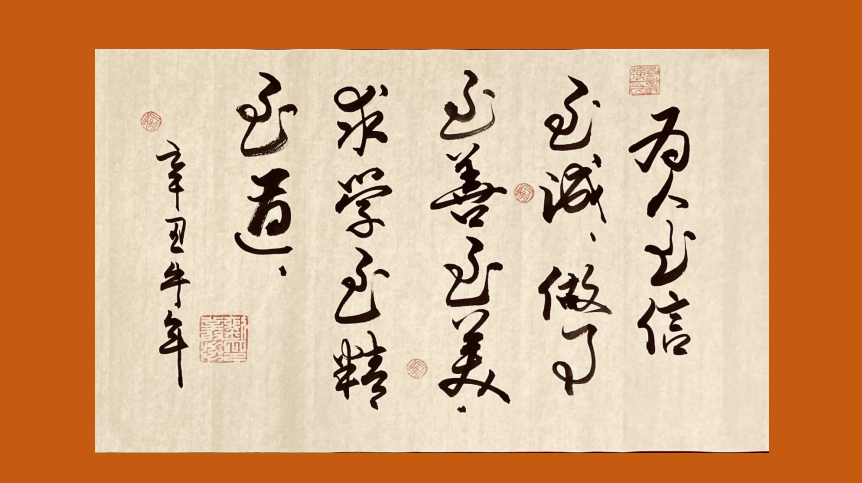 为人至信
至诚、做事
至善至美、
求学至精
至道、
辛丑牛年